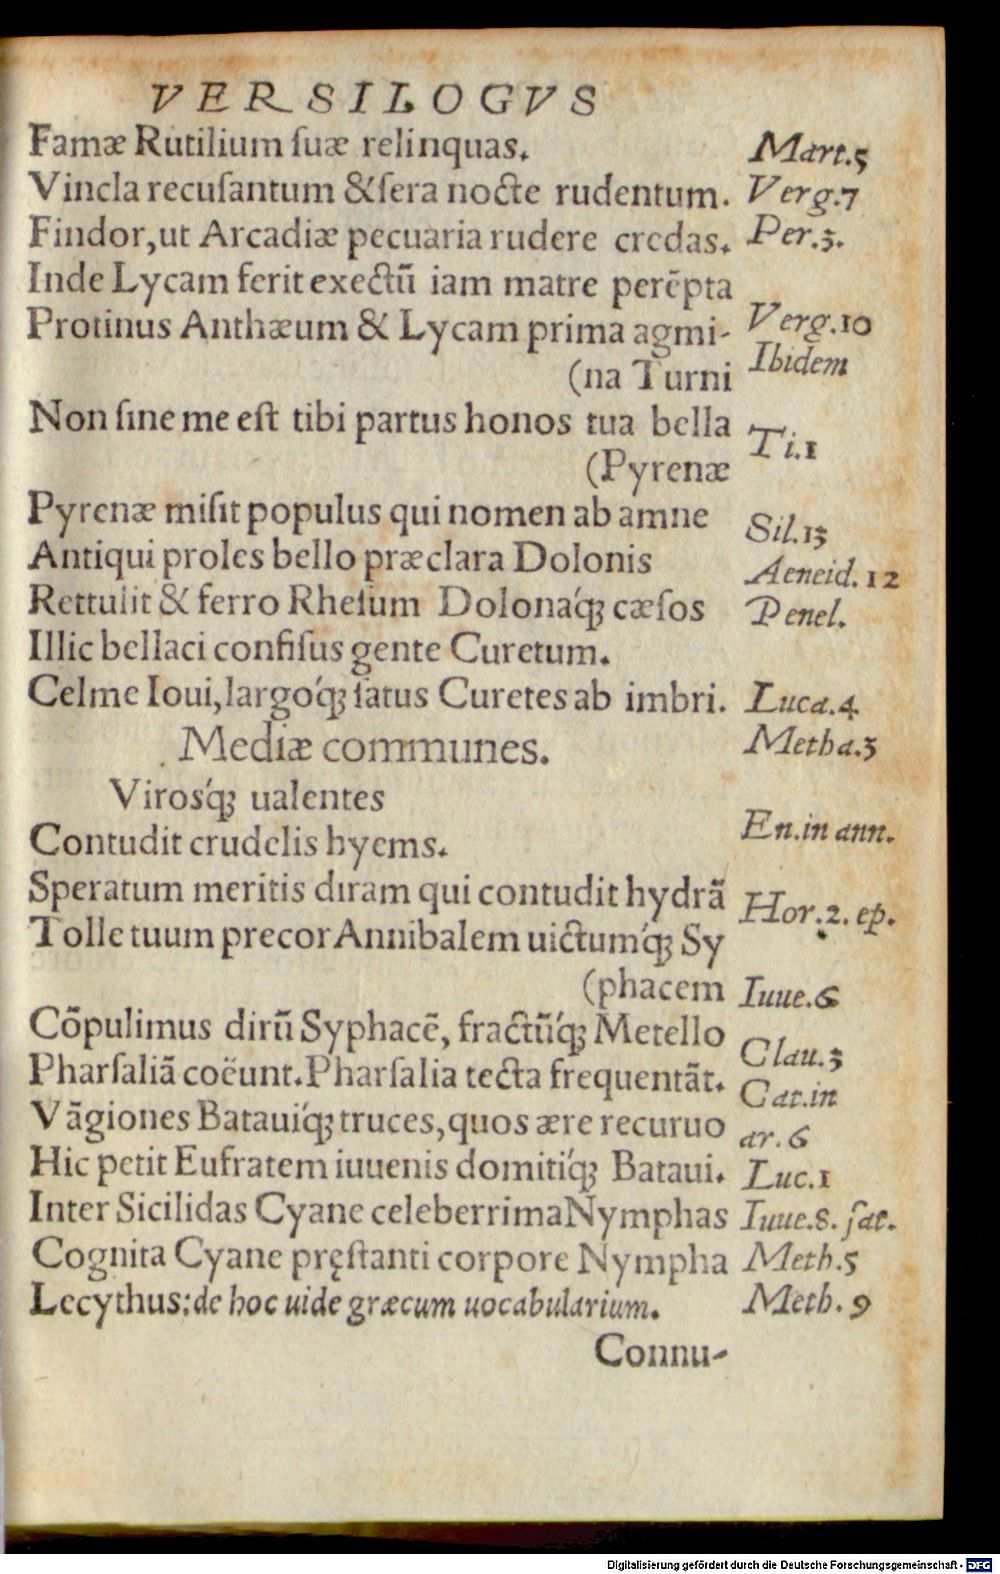 VERSILOGVS
Famæ Rutilium ſuæ relinquas. Mart.5
Vincla recuſantum & ſera nocte rudentum. Verg.7
Findor, ut Arcadiæ pecuaria rudere credas. Per.3.
Inde Lycam ferit exectũ iam matre perẽpta
Protinus Anthæum & Lycam prima agmi- Verg.10
(na Turni Ibidem
Non ſine me eſt tibi partus honos tua bella Ti.1
(Pyrenæ
Pyrenæ miſit populus qui nomen ab amne Sil.13
Antiqui proles bello præclara Dolonis Aeneid.12
Rettulit & ferro Rheſum Dolonaq́ꝫ cæſos Penel.
Illic bellaci confiſus gente Curetum.
Celme Ioui, largoq́ꝫ ſatus Curetes ab imbri. Luca.4
Mediæ communes. Metha.3
Virosq́ꝫ ualentes
Contudit crudelis hyems. En.in ann.
Speratum meritis diram qui contudit hydrã Hor.2.ep.
Tolle tuum precor Annibalem uictumq́ꝫ Sy
(phacem Iuue.6
Cõpulimus dirũ Syphacẽ, fractũq́ꝫ Metello Clau.3
Pharſaliã coëunt. Pharſalia tecta frequentãt. Cat.in
Vãgiones Batauiq́ꝫ truces, quos ære recuruo ar.6
Hic petit Eufratem iuuenis domitiq́ꝫ Bataui. Luc.1
Inter Sicilidas Cyane celeberrima Nymphas Iuue.8.ſat.
Cognita Cyane pręſtanti corpore Nympha Meth.5
Lecythus: de hoc uide græcum uocabularium. Meth.9
Connu-
Digitalisierung gefördert durch die Deutsche Forschungsgemeinschaft - DFG